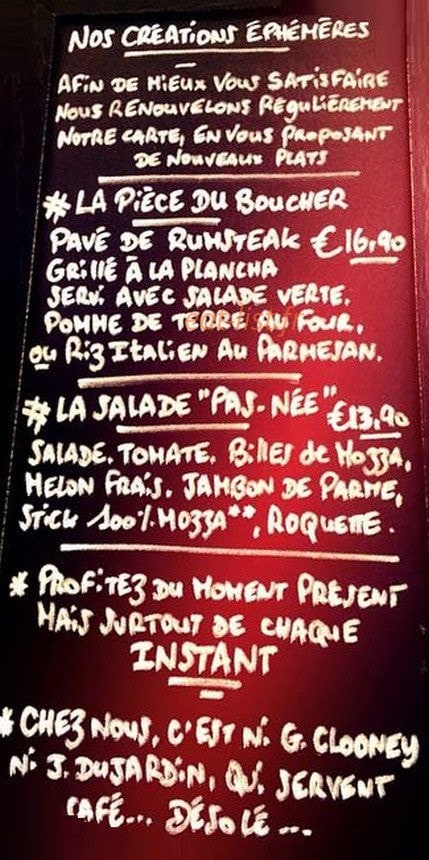 NOS CREATIONS ÉPHÉMÈRES
AFIN DE MIEUX VOUS SATISFAIRE
NOUS RENOUVELONS RÉGULIÈREMENT
NOTRE CARTE, EN VOUS PROPOSANT
DE NOUVEAUX PLATS
* LA PIÈCE DU BOUCHER
PAVÉ DE RUMSTEAK €16,90
GRILLÉ À LA PLANCHA
SERVI AVEC SALADE VERTE.
POMME DE TERRE AU FOUR,
OU RIZ ITALIEN AU PARMESAN.
* LA SALADE "PAS-NÉE" €13,90
SALADE. TOMATE. Billes de Mozza,
MELON FRAIS. JAMBON DE PARME,
STICK 100% MOZZA**, ROQUETTE.
* PROFITEZ DU MOMENT PRÉSENT
MAIS SURTOUT DE CHAQUE
INSTANT
* CHEZ NOUS, C'EST Ni G. CLOONEY
Ni J. DUJARDIN, QUi SERVENT
CAFÉ... DÉSOLÉ...